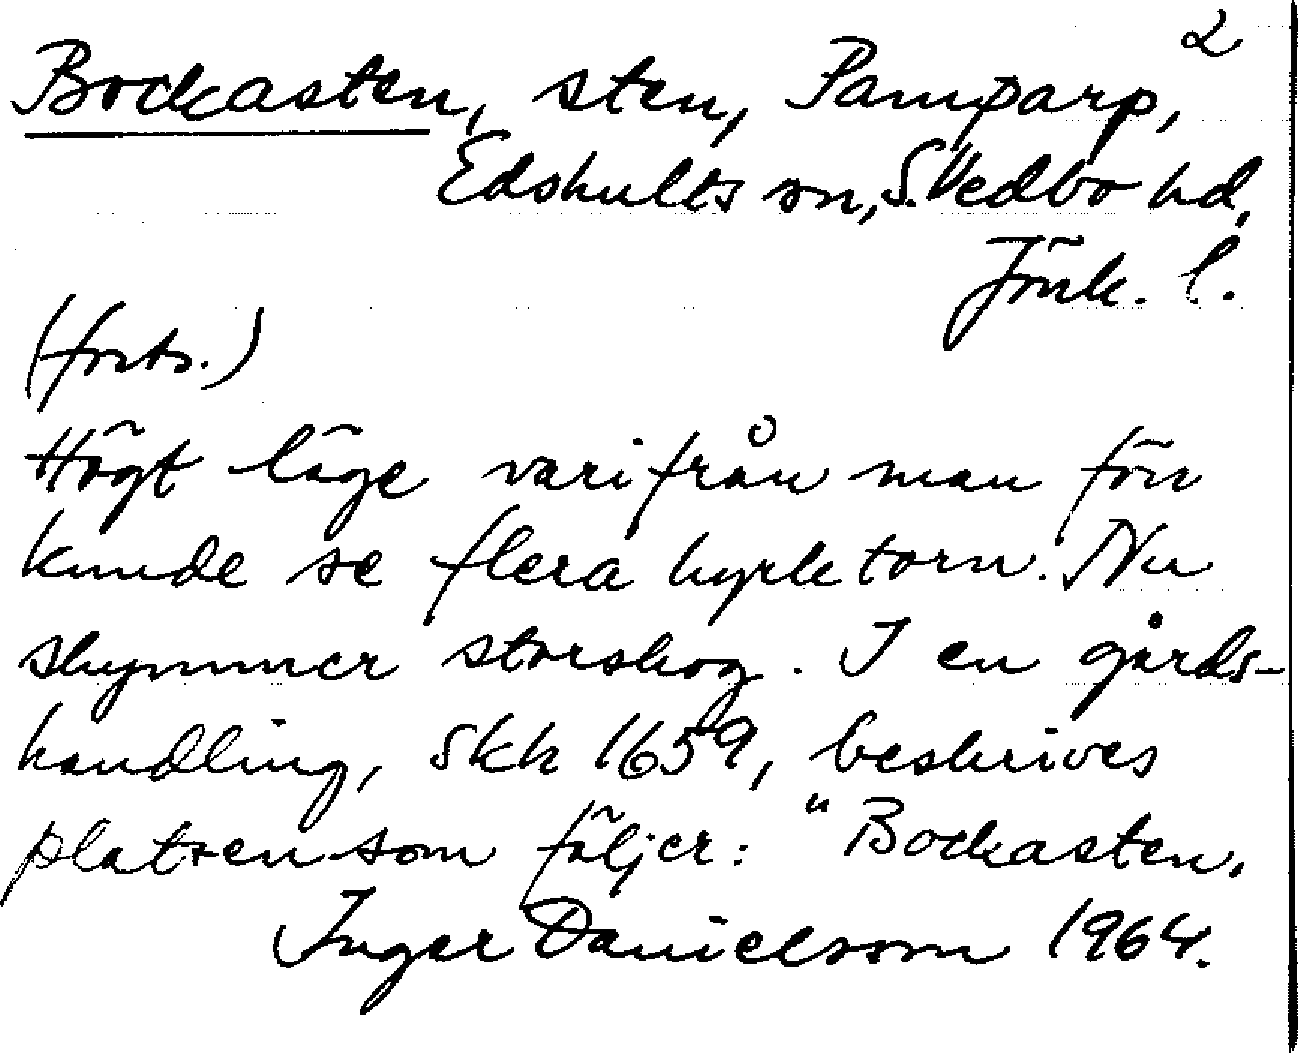 2
Bockasten, sten, Pamparp,
Edshults sn, S. Vedbo hd,
Jönk. l.
(forts.)
Högt läge varifrån man förr
kunde se flera kyrktorn. Nu
skymmer storskog. I en gårds-
handling, Skh 1659, beskrives
platsen som följer: "Bockasten.
Inger Danielsson 1964.